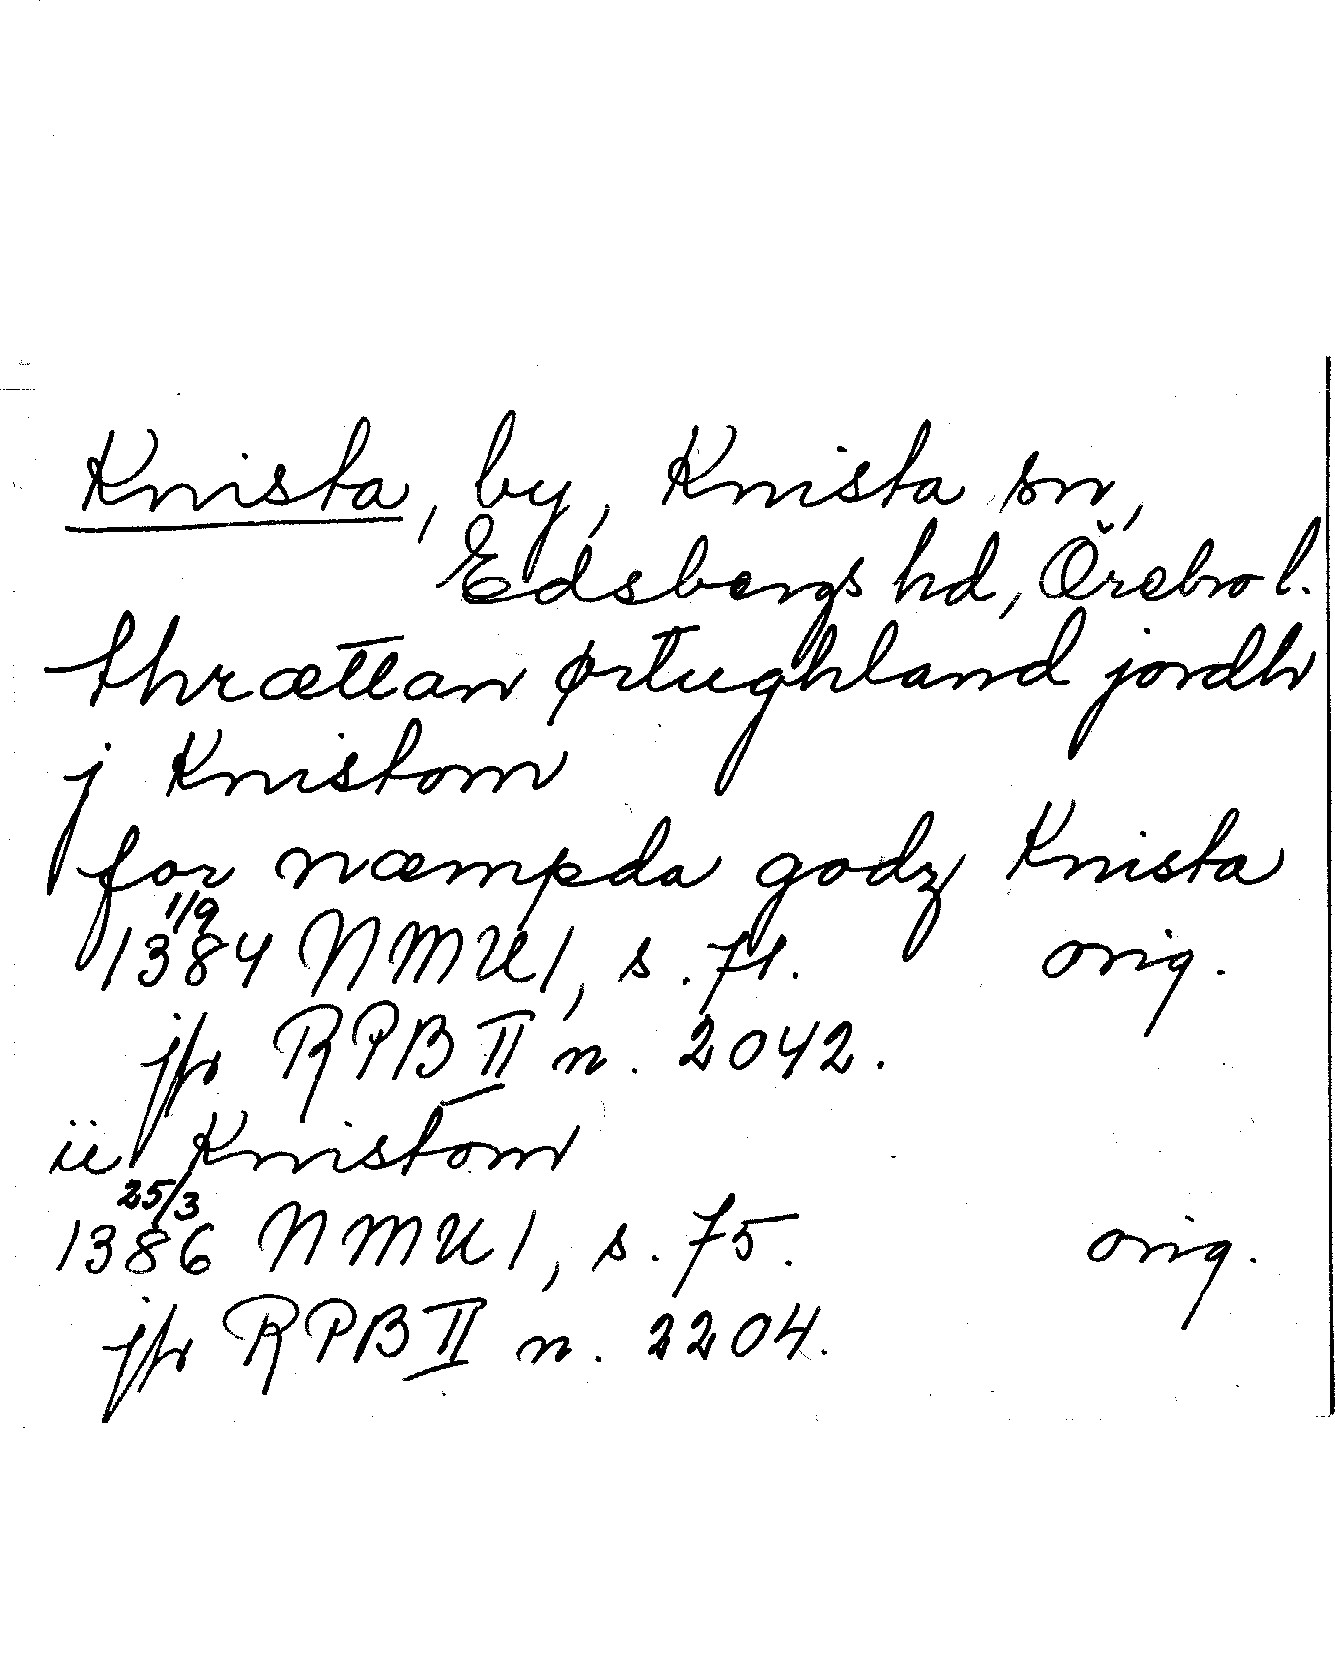 Knista, by, Knista sn,
Edsbergs hd, Örebro l.
thrættan ørtughland jordh
j Knistom
for næmpda godz Knista
1/9
1384 NMU 1, s. 71. orig.
jfr RPB II n. 2042.
ii Knistom
25/3
1386 NMU 1, s. 75. orig.
jfr RPB II n. 2204.